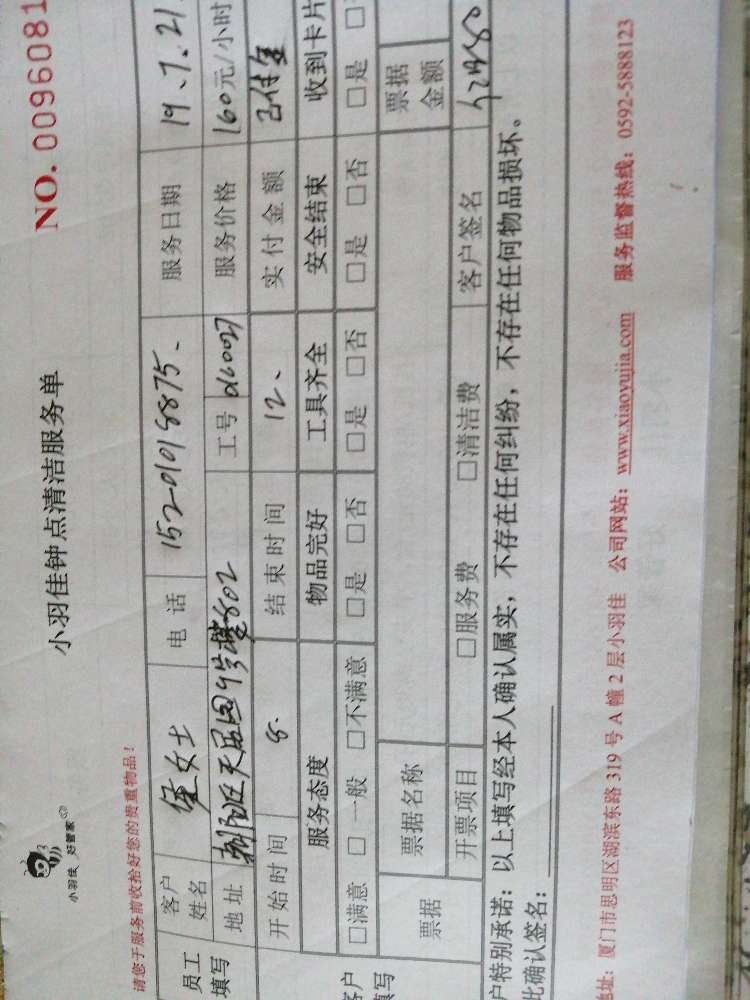 小羽佳 好管家
小羽佳钟点清洁服务单
NO. 0096081
请您于服务前收拾好您的贵重物品！
员工填写 客户姓名 女士 电话 15201018875. 服务日期 19.7.21
地址 802 工号 服务价格 160元/小时
开始时间 8. 结束时间 12. 实付金额
服务态度 物品完好 工具齐全 安全结束 收到卡片
□满意 □一般 □不满意 □是 □否 □是 □否 □是 □否 □是
票据 票据名称 票据金额
开票项目 □服务费 □清洁费 客户签名
户特别承诺：以上填写经本人确认属实，不存在任何纠纷，不存在任何物品损坏。
此确认签名：
地址：厦门市思明区湖滨东路319号A幢2层小羽佳 公司网站：www.xiaoyujia.com 服务监督热线：0592-5888123